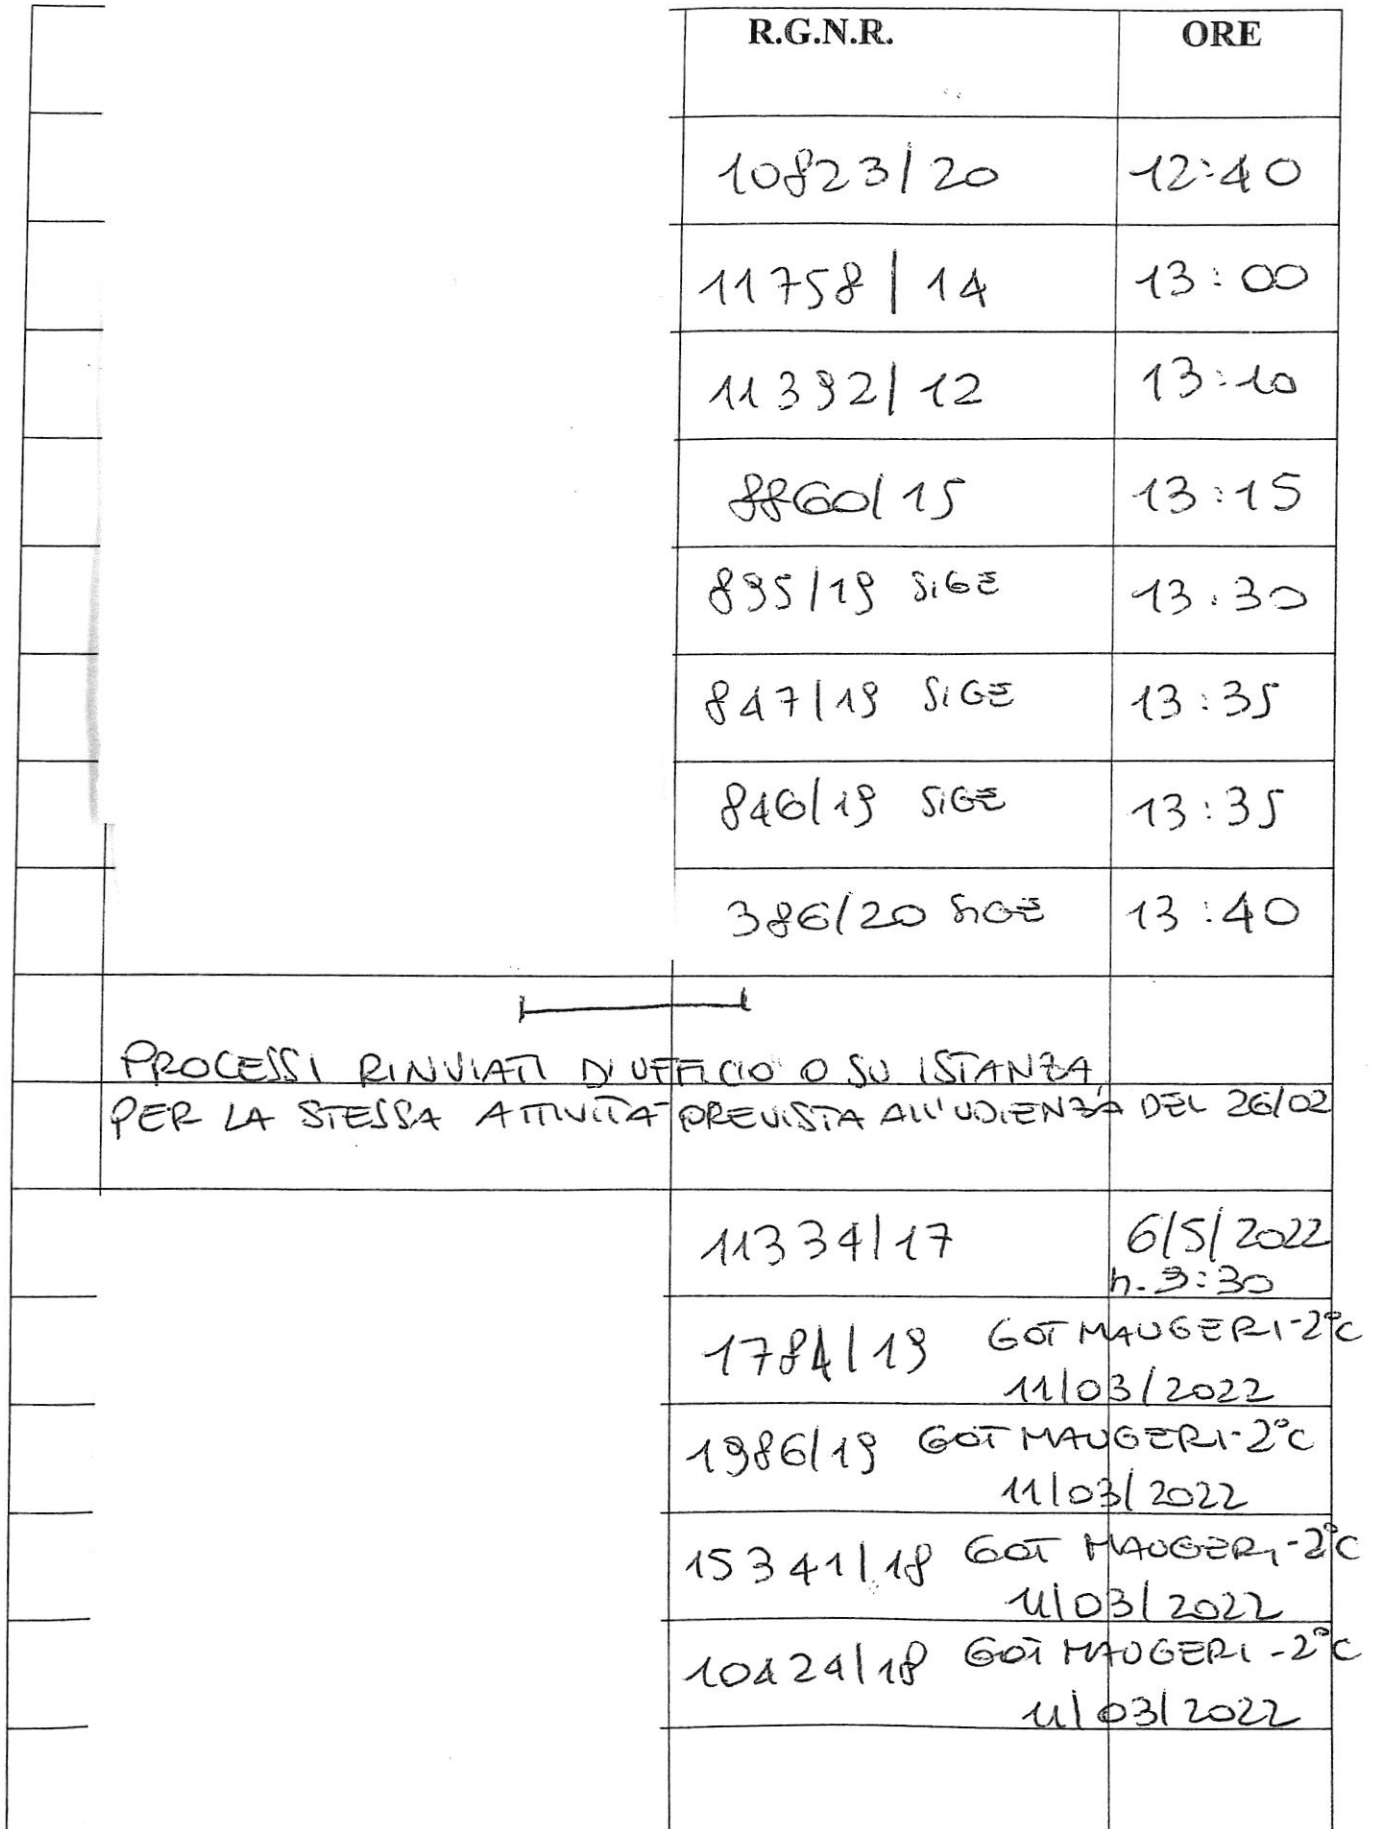 R.G.N.R. ORE
10823/20 12:40
11758/14 13:00
11392/12 13:10
8860/15 13:15
895/19 SIGE 13:30
847/19 SIGE 13:35
846/19 SIGE 13:35
386/20 SIGE 13:40
PROCESSI RINVIATI D'UFFICIO O SU ISTANZA,
PER LA STESSA ATTIVITA' PREVISTA ALL'UDIENZA DEL 26/02
11334/17 6/5/2022
h. 9:30
1784/19 GOT MAUGERI-2°C
11/03/2022
1986/19 GOT MAUGERI-2°C
11/03/2022
15341/18 GOT MAUGERI-2°C
11/03/2022
10424/18 GOT MAUGERI-2°C
11/03/2022